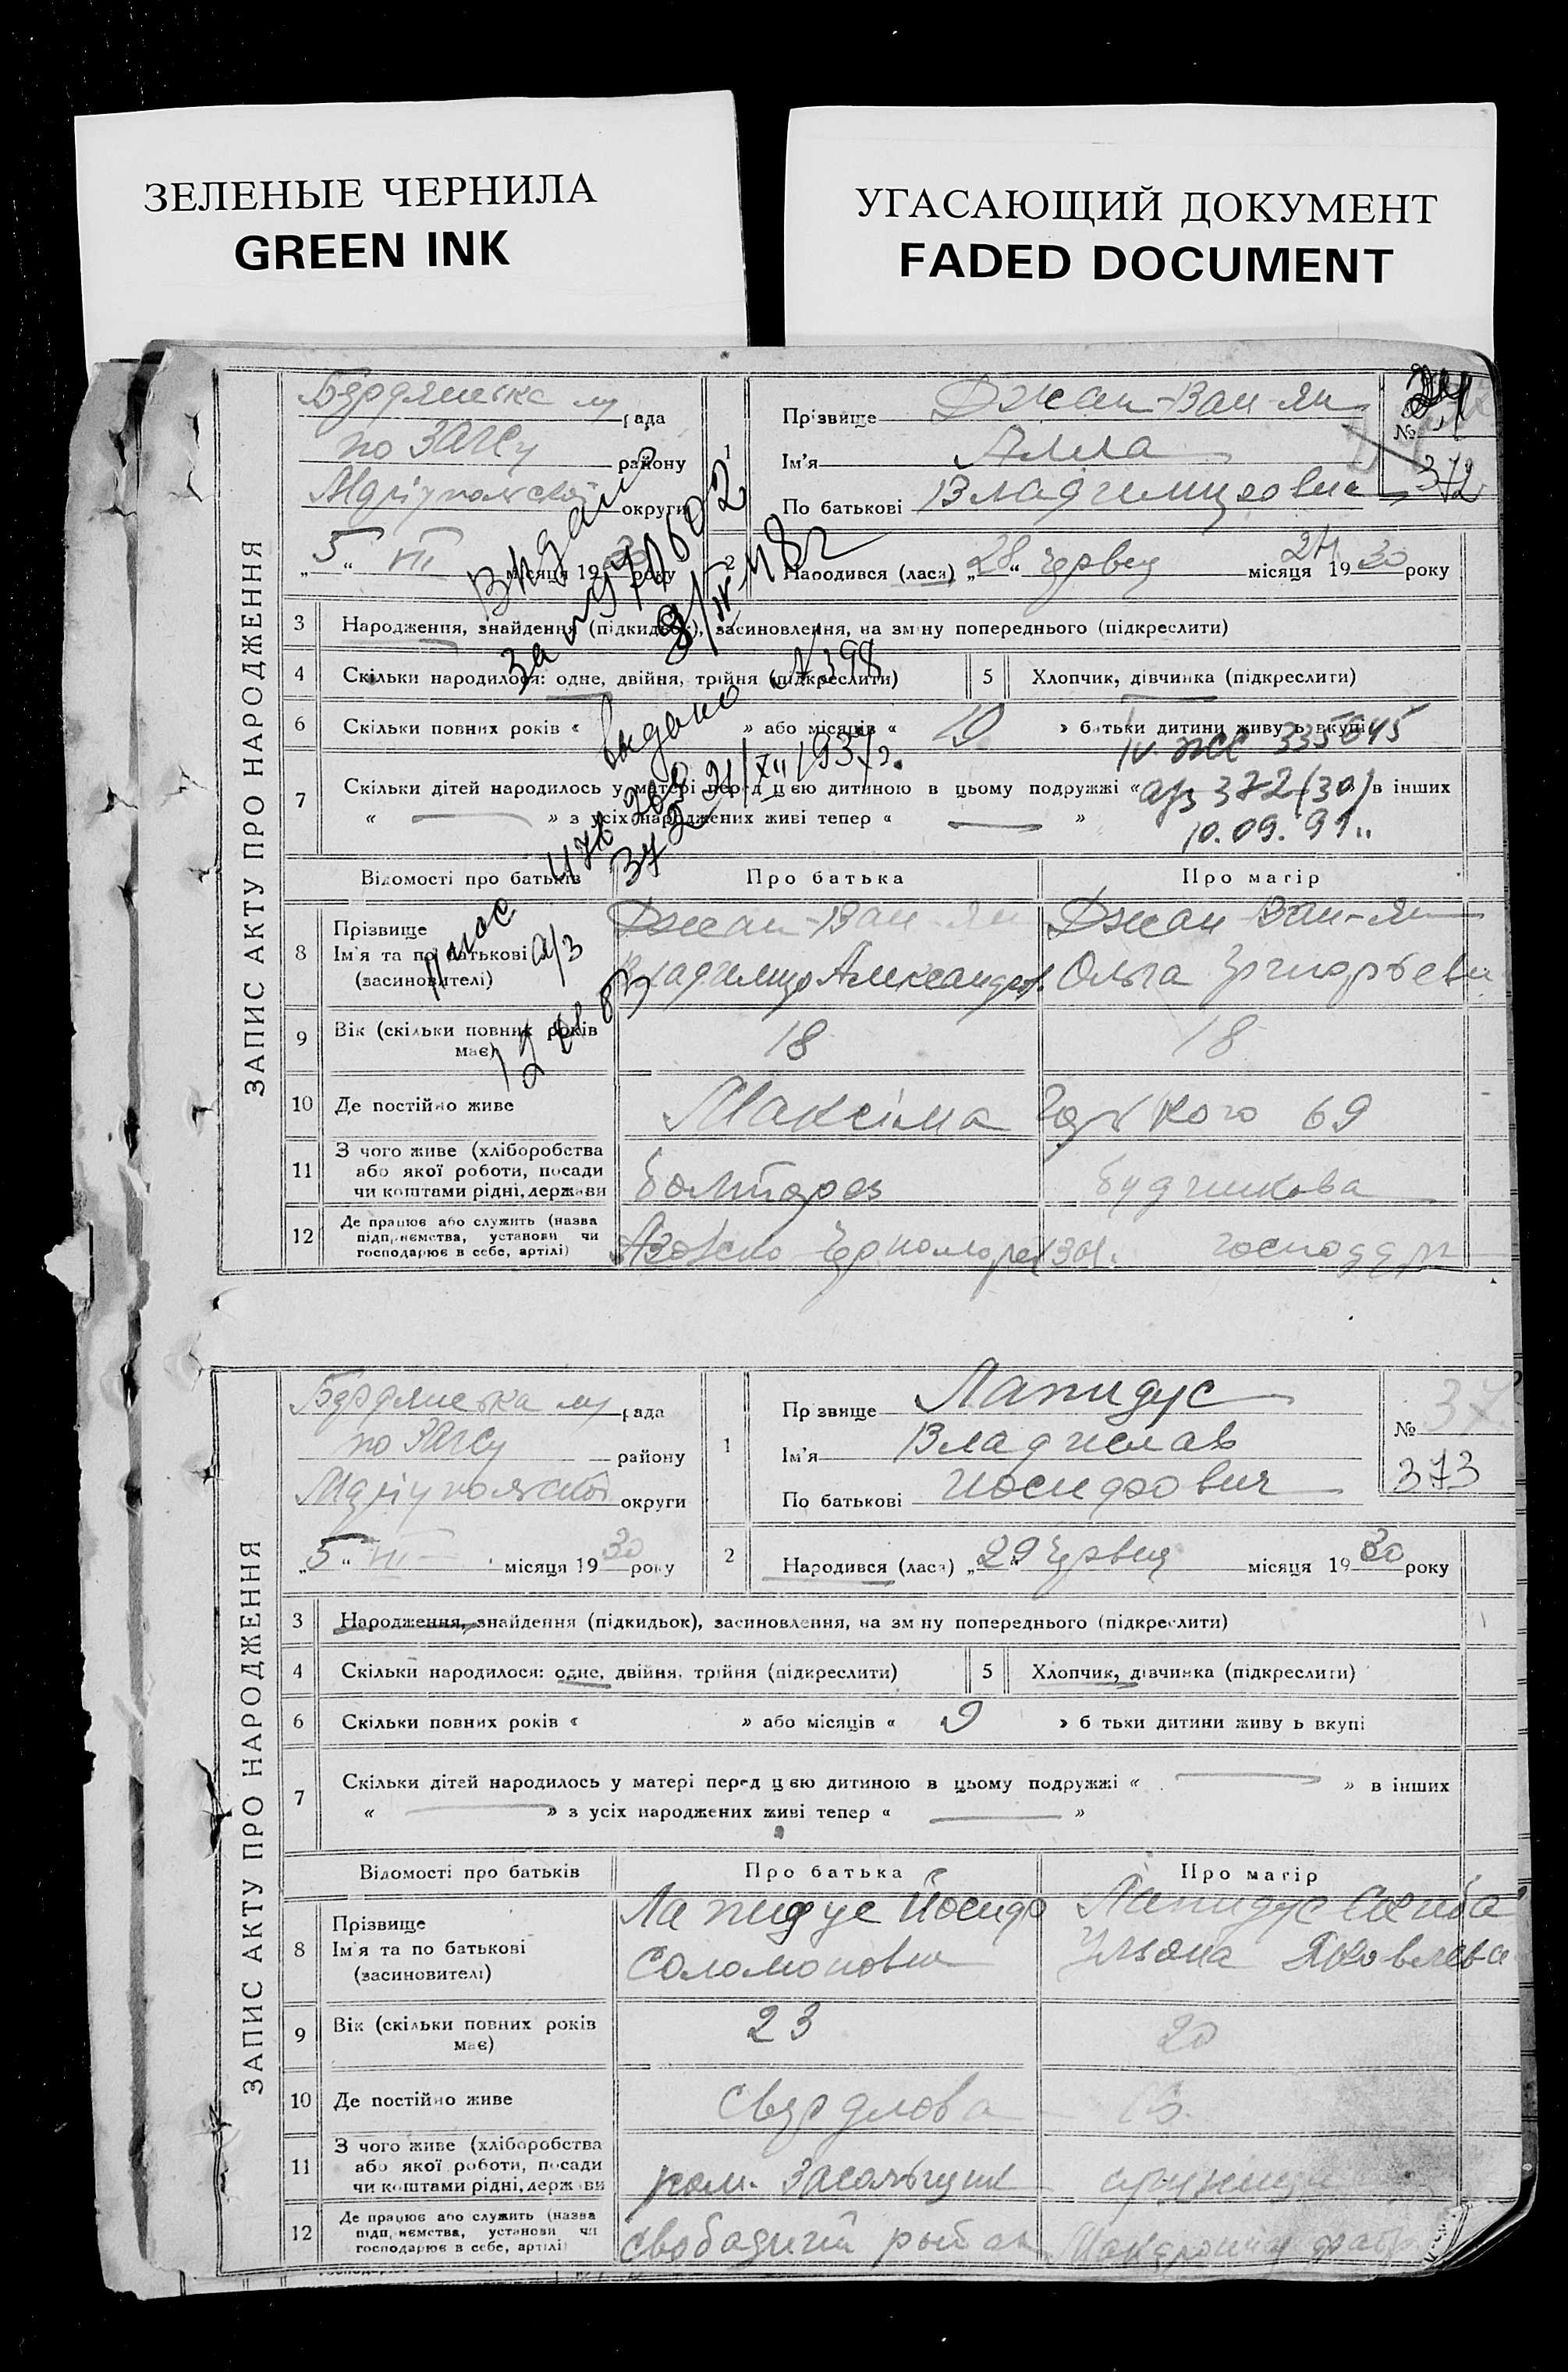 ЗЕЛЕНЫЕ ЧЕРНИЛА
GREEN INK
УГАСАЮЩИЙ ДОКУМЕНТ
FADED DOCUMENT
ЗАПИС АКТУ ПРО НАРОДЖЕННЯ
Бердянська рада
по ЗАГСу району
Маріупольской округи
„5“ VII місяця 1930 року
1
Прізвище Джан-Ван-Ян
Ім'я Алла
По батькові Владимировна
№ 372
2 Народився (лася) „28“ червня місяця 1930 року
3 Народження, знайдення (підкидьок), засиновлення, на зміну попереднього (підкреслити)
4 Скільки народилося: одне, двійня, трійня (підкреслити)
5 Хлопчик, дівчинка (підкреслити)
6 Скільки повних років « » або місяців « 10 » батьки дитини живуть вкупі
IV ЖС 335645
7 Скільки дітей народилось у матері перед цією дитиною в цьому подружжі « в інших
« — » з усіх народжених живі тепер « — »
а/з 372 (30)
10.09.91
Видано № 398
21/XII 1937 г.
Відомості про батьків
Про батька
Про матір
8 Прізвище
Ім'я та по батькові
(засновителі)
Джан-Ван-Ян
Владимир Александр.
Джан-Ван-Ян
Ольга Григорьевн
9 Вік (скільки повних років має)
18
18
10 Де постійно живе
Максіма Горького 69
11 З чого живе (хліборобства
або якої роботи, посади
чи коштами рідні, держави
12 Де працює або служить (назва
підприємства, установи чи
господарює в себе, артілі)
Азовско Черноморск
господар
ЗАПИС АКТУ ПРО НАРОДЖЕННЯ
Бердянська рада
по ЗАГСу району
Маріупольской округи
„5“ VII місяця 1930 року
1
Прізвище Лапидус
Ім'я Владислав
По батькові Иосифович
№ 373
2 Народився (лася) „29“ червня місяця 1930 року
3 Народження, знайдення (підкидьок), засиновлення, на зміну попереднього (підкреслити)
4 Скільки народилося: одне, двійня, трійня (підкреслити)
5 Хлопчик, дівчинка (підкреслити)
6 Скільки повних років « » або місяців « 9 » батьки дитини живуть вкупі
7 Скільки дітей народилось у матері перед цією дитиною в цьому подружжі « — » в інших
« — » з усіх народжених живі тепер « — »
Відомості про батьків
Про батька
Про матір
8 Прізвище
Ім'я та по батькові
(засиновителі)
Лапидус Йосиф
Соломонович
Лапидус
Яковлевна
9 Вік (скільки повних років має)
23
20
10 Де постійно живе
Свердлова
11 З чого живе (хліборобства
або якої роботи, посади
чи коштами рідні, держави
засольщик
12 Де працює або служить (назва
підприємства, установи чи
господарює в себе, артілі)
рыбак
Макаронна фабр.